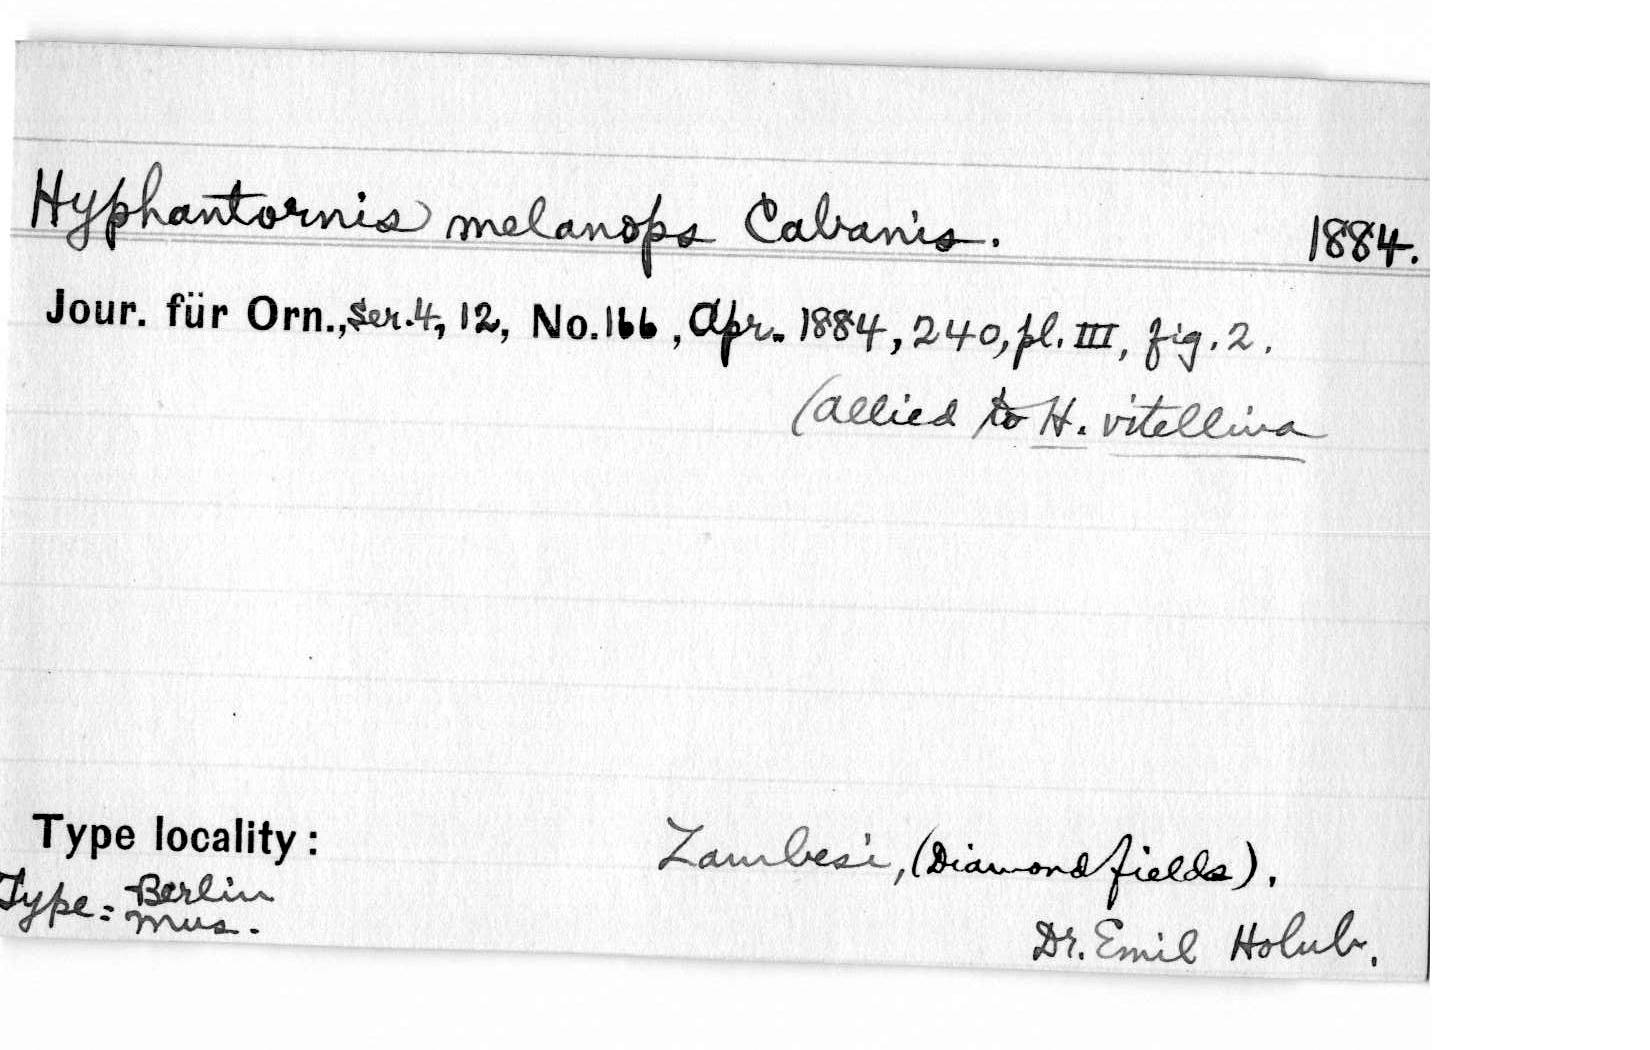 Hyphantornis melanops Cabanis. 1884.
Jour. für Orn., Ser. 4, 12, No. 166, Apr. 1884, 240, pl. III, fig. 2.
(allied to H. vitellina
Type locality: Zambesi, (Diamond fields).
Type = Berlin
Mus.
Dr. Emil Holub.